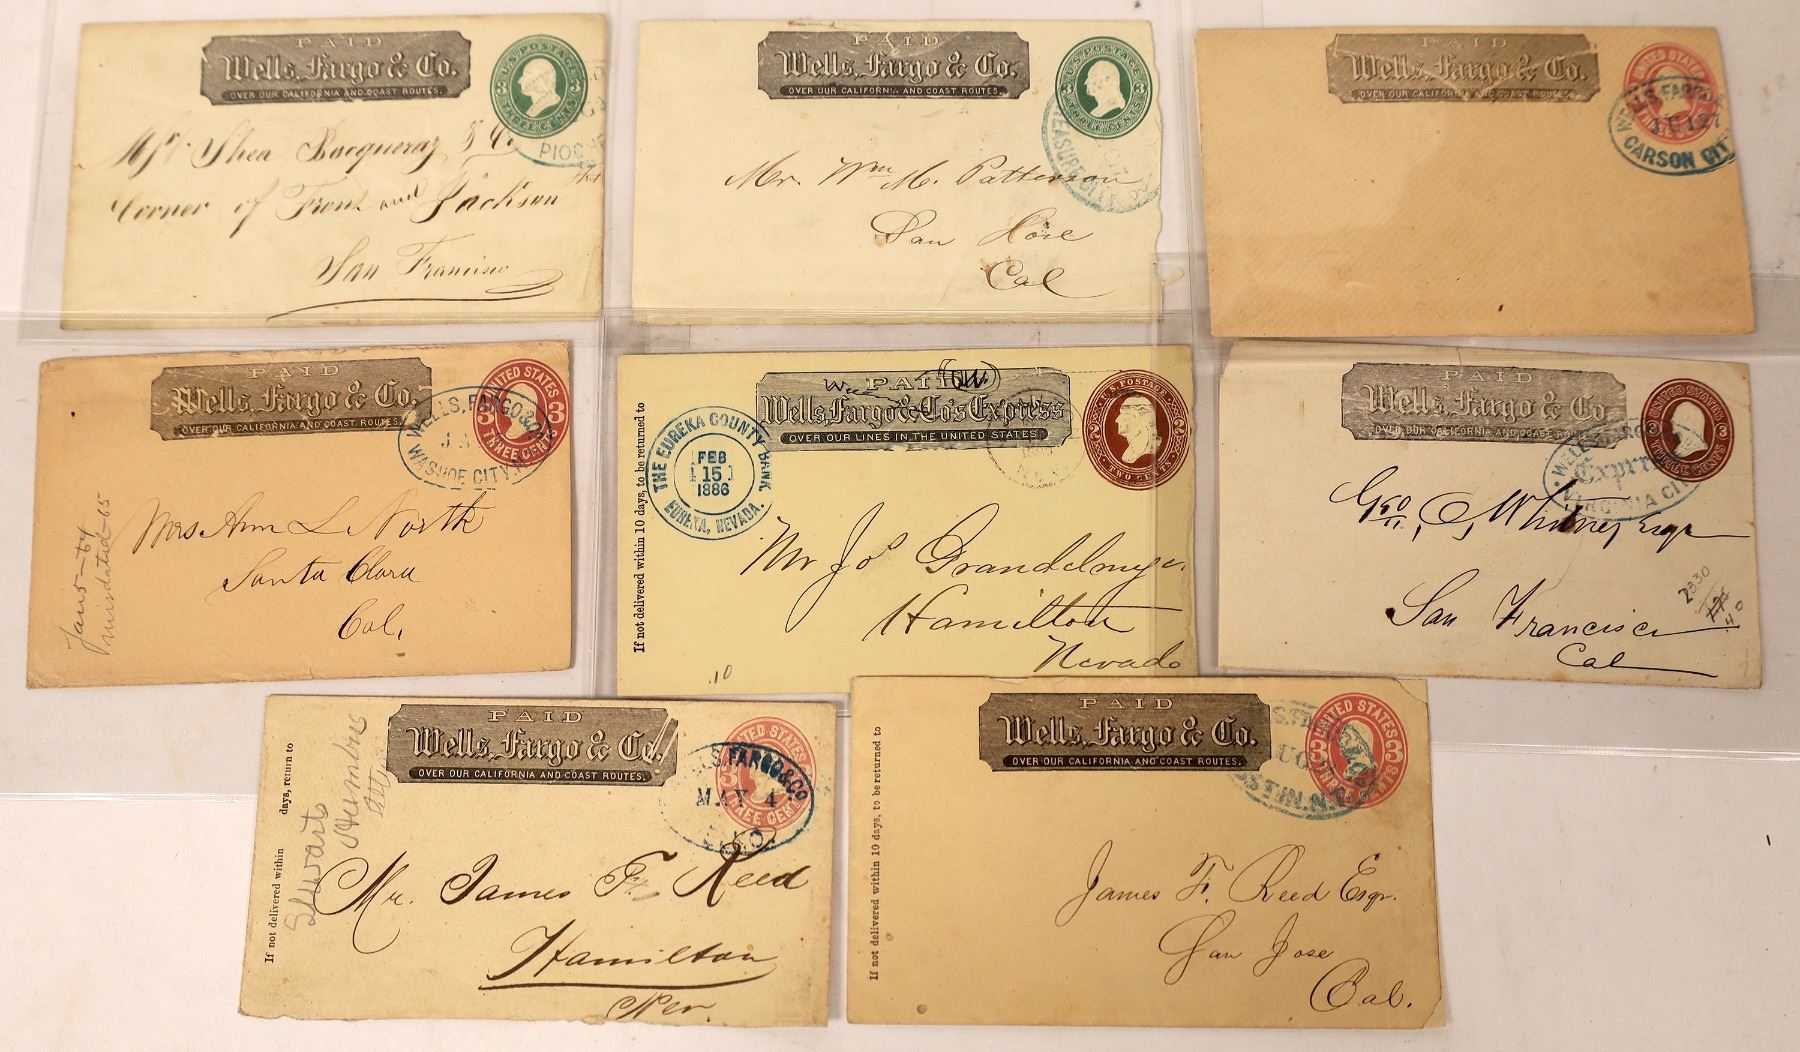 PAID
Wells, Fargo & Co.
OVER OUR CALIFORNIA AND COAST ROUTES.
U.S. POSTAGE
3 3
THREE CENTS
PIOCHE
Shea Bocqueraz & Co
Corner of Front and Jackson
San Francisco
PAID
Wells, Fargo & Co.
OVER OUR CALIFORNIA AND COAST ROUTES.
U.S. POSTAGE
3 3
THREE CENTS
TREASURE CITY
Mr. Wm M. Patterson
San Jose
Cal
PAID
Wells, Fargo & Co.
OVER OUR CALIFORNIA AND COAST ROUTES.
UNITED STATES
WELLS, FARGO
27
CARSON CITY
PAID
Wells, Fargo & Co.
OVER OUR CALIFORNIA AND COAST ROUTES.
UNITED STATES
3 3
THREE CENTS
WELLS, FARGO & CO.
WASHOE CITY, N.
Jan 5-64
misdated-65
Mrs Ann L North
Santa Clara
Cal.
PAID
Wells, Fargo & Co's Express
OVER OUR LINES IN THE UNITED STATES
U.S. POSTAGE
2 2
TWO CENTS
THE EUREKA COUNTY BANK.
FEB
15
1886
EUREKA, NEVADA.
If not delivered within 10 days, to be returned to
Mr Jos Grandelmyer
Hamilton
Nevada
10
PAID
Wells, Fargo & Co.
OVER OUR CALIFORNIA AND COAST ROUTES.
UNITED STATES
3 3
THREE CENTS
WELLS FARGO
Express
VIRGINIA CITY
Geo, E, Whitney Esqr
San Francisco
Cal
2330
PAID
Wells, Fargo & Co.
OVER OUR CALIFORNIA AND COAST ROUTES.
UNITED STATES
3
THREE CENTS
LS, FARGO & CO
MAY 4
If not delivered within days, return to
Mr. James F. Reed
Hamilton
Nev.
PAID
Wells, Fargo & Co.
OVER OUR CALIFORNIA AND COAST ROUTES.
UNITED STATES
3 3
THREE CENTS
AUG
STIN. N.
If not delivered within 10 days, to be returned to
James F. Reed Esqr.
San Jose
Cal.